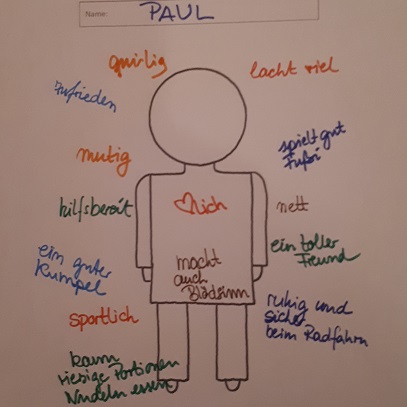 Name: PAUL
quirlig
lacht viel
zufrieden
spielt gut
Fußi
mutig
hilfsbereit
❤lich
nett
ein toller
Freund
ein guter
Kumpel
macht
auch
Blödsinn
sportlich
ruhig und
sicher
beim Radfahrn
kann
riesige Portionen
Nudeln essen